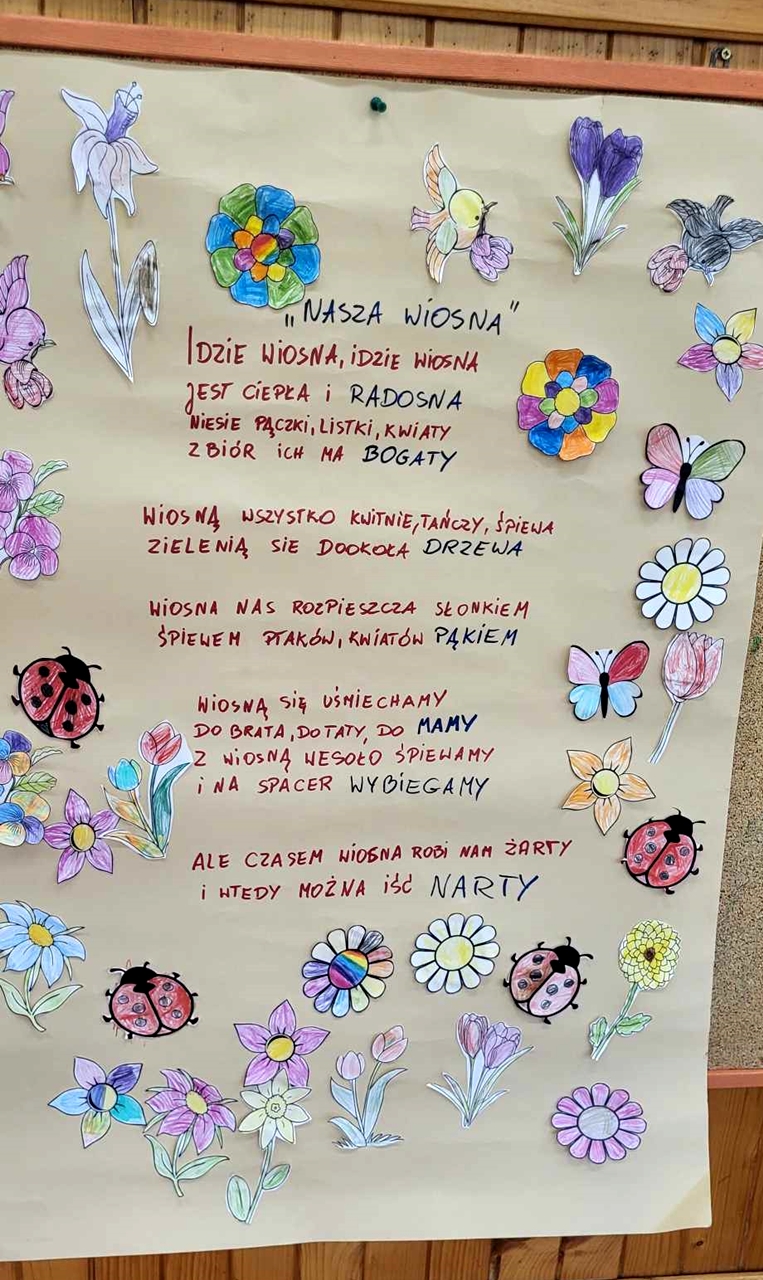 „NASZA WIOSNA"
IDZIE WIOSNA, IDZIE WIOSNA
JEST CIEPŁA I RADOSNA
NIESIE PĄCZKI, LISTKI, KWIATY
ZBIÓR ICH MA BOGATY
WIOSNĄ WSZYSTKO KWITNIE, TAŃCZY, ŚPIEWA
ZIELENIĄ SIE DOOKOŁA DRZEWA
WIOSNA NAS ROZPIESZCZA SŁONKIEM
ŚPIEWEM PTAKÓW, KWIATÓW PĄKIEM
WIOSNĄ SIĘ UŚMIECHAMY
DO BRATA, DO TATY, DO MAMY
Z WIOSNĄ WESOŁO ŚPIEWAMY
I NA SPACER WYBIEGAMY
ALE CZASEM WIOSNA ROBI NAM ŻARTY
I WTEDY MOŻNA IŚĆ NARTY